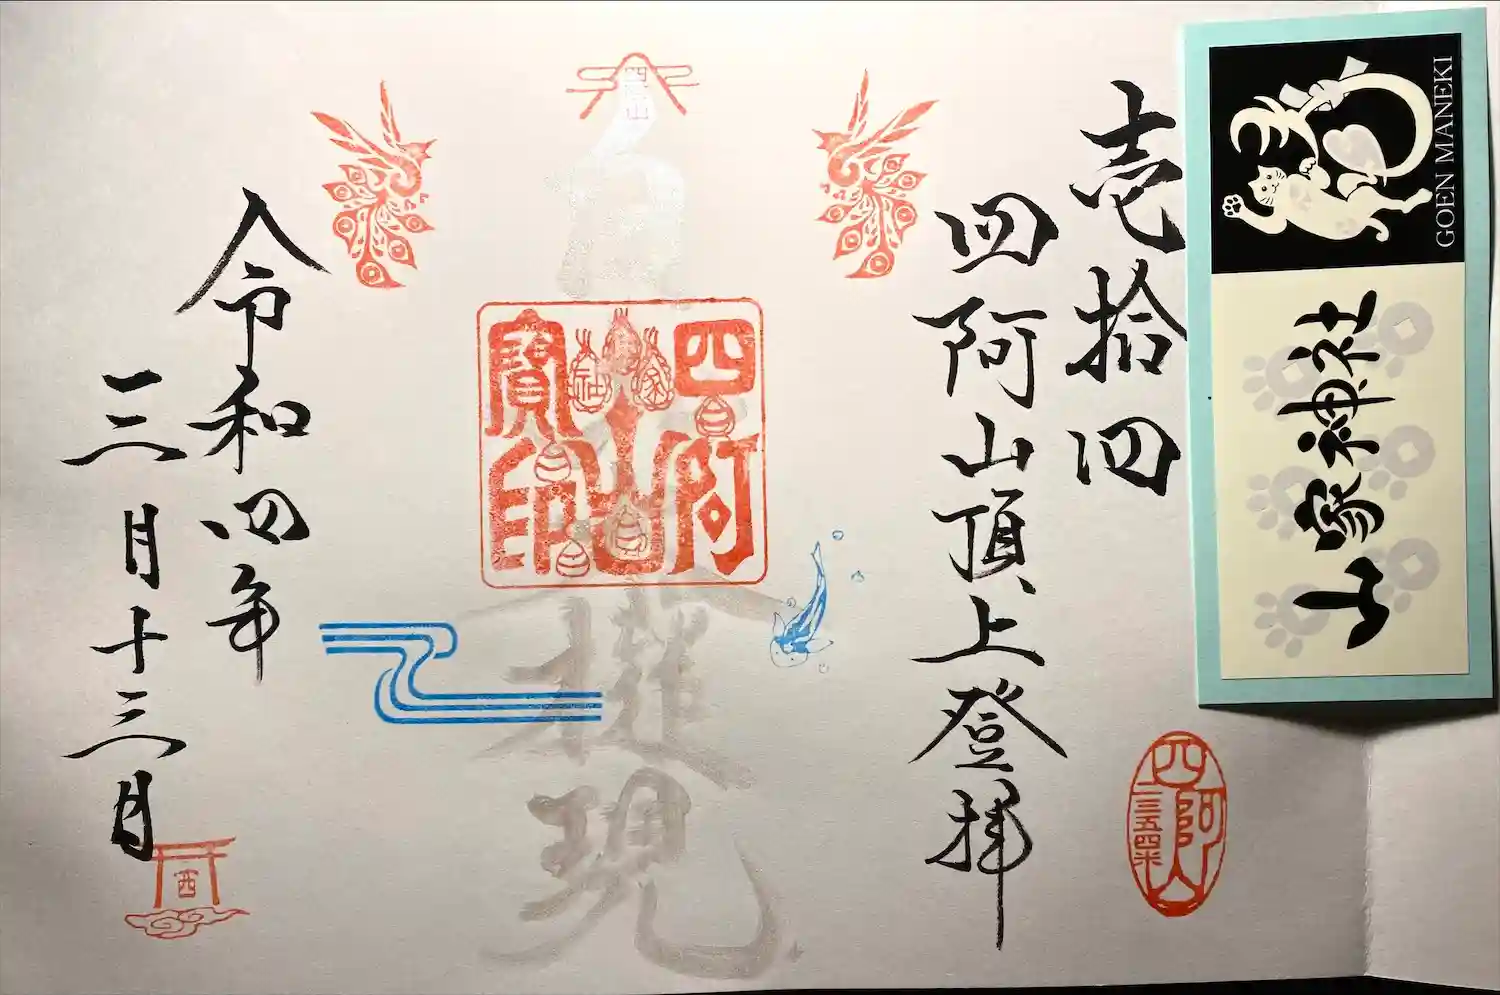 GOEN MANEKI
山家神社
壱拾四
四阿山頂上登拝
四阿山
二三五四米
四阿山
白山大権現
四阿山寶印
令和四年
三月十三日
西